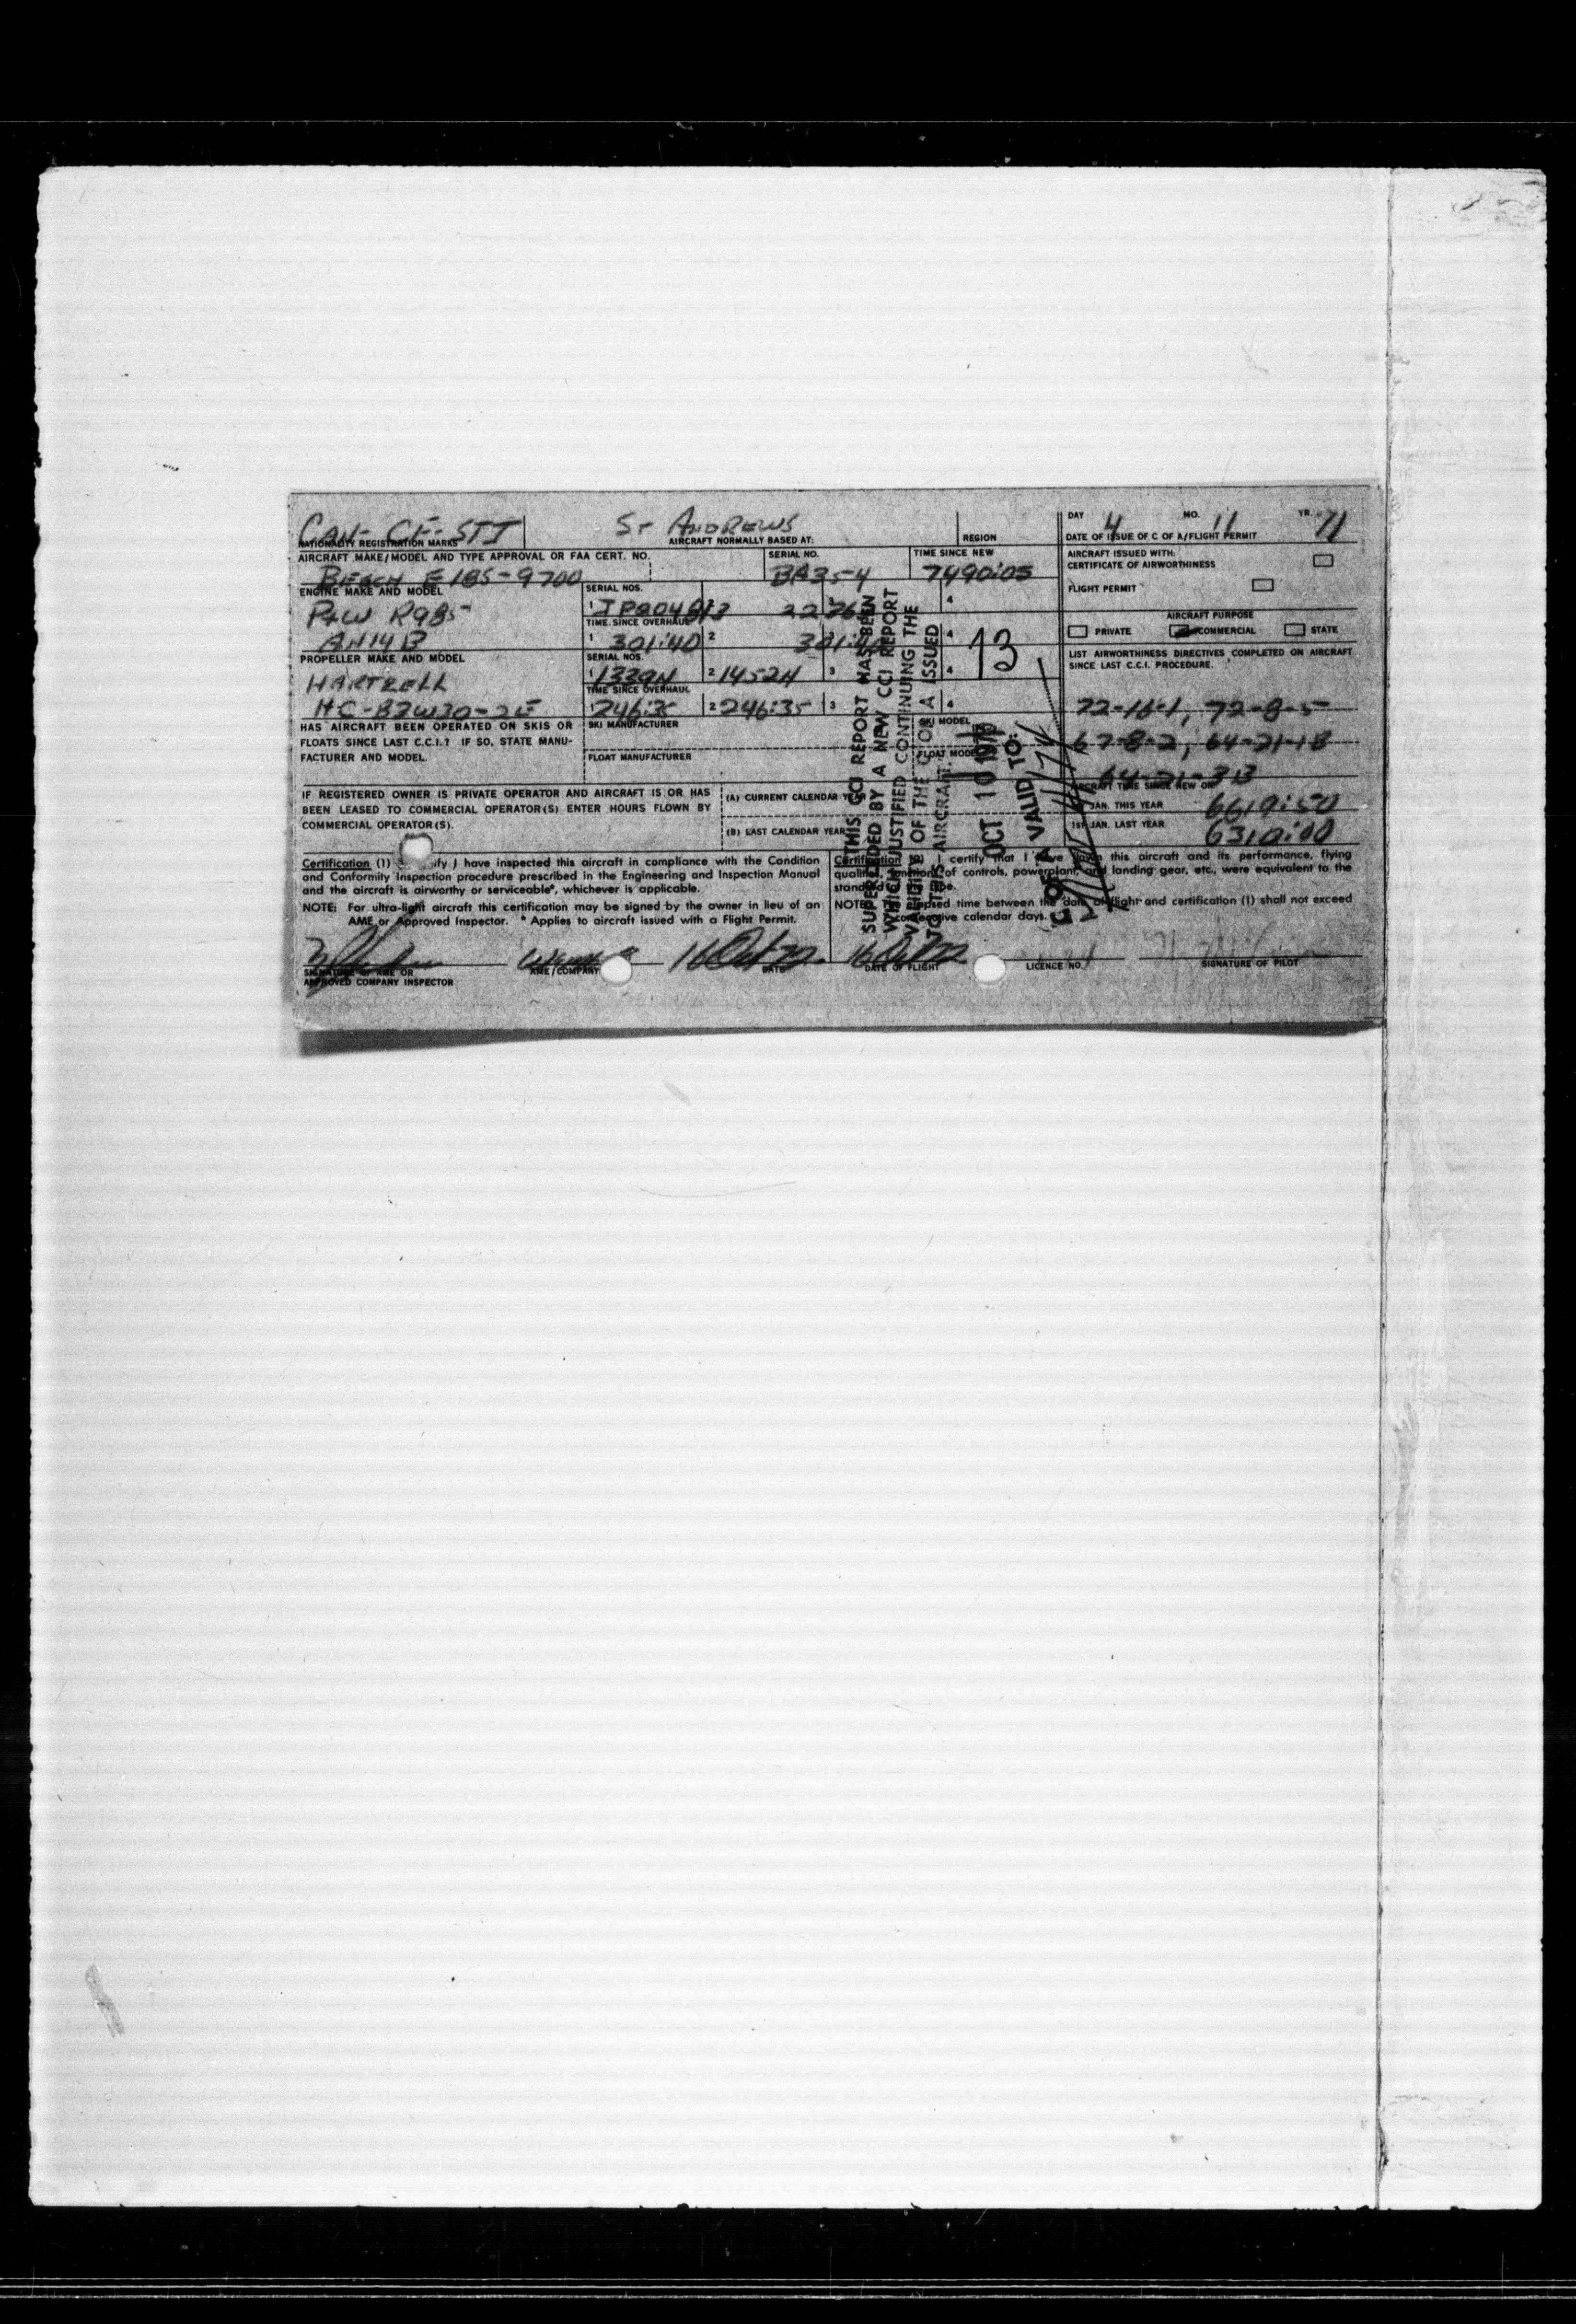 CAN- CF- STI
ST ANDREWS
NATIONALITY REGISTRATION MARKS
AIRCRAFT NORMALLY BASED AT:
REGION
DAY 4 MO. 11 YR. 71
DATE OF ISSUE OF C OF A/FLIGHT PERMIT
AIRCRAFT MAKE/MODEL AND TYPE APPROVAL OR FAA CERT. NO.
BEECH E18S-9700
SERIAL NO.
BA354
TIME SINCE NEW
7490:05
AIRCRAFT ISSUED WITH:
CERTIFICATE OF AIRWORTHINESS
FLIGHT PERMIT
AIRCRAFT PURPOSE
PRIVATE COMMERCIAL STATE
ENGINE MAKE AND MODEL
P&W R985
AN14B
SERIAL NOS.
1 2 3 4
TIME SINCE OVERHAUL
1 301:40 2 4
13
PROPELLER MAKE AND MODEL
HARTZELL
HC-B3W30-2E
SERIAL NOS.
1 1339H 2 1452H 3 4
TIME SINCE OVERHAUL
1 246:35 2 246:35 3 4
LIST AIRWORTHINESS DIRECTIVES COMPLETED ON AIRCRAFT
SINCE LAST C.C.I. PROCEDURE.
72-16-1, 72-8-5
67-8-2, 64-21-1B
64-21-3B
HAS AIRCRAFT BEEN OPERATED ON SKIS OR
FLOATS SINCE LAST C.C.I.? IF SO, STATE MANU-
FACTURER AND MODEL.
SKI MANUFACTURER
SKI MODEL
FLOAT MANUFACTURER
FLOAT MODEL
IF REGISTERED OWNER IS PRIVATE OPERATOR AND AIRCRAFT IS OR HAS
BEEN LEASED TO COMMERCIAL OPERATOR(S) ENTER HOURS FLOWN BY
COMMERCIAL OPERATOR(S).
(A) CURRENT CALENDAR YEAR
(B) LAST CALENDAR YEAR
AIRCRAFT TIME SINCE NEW ON
JAN. THIS YEAR 6619:50
1ST JAN. LAST YEAR 6310:00
THIS CCI REPORT HAS BEEN
SUPERSEDED BY A NEW CCI REPORT
WHICH JUSTIFIED CONTINUING THE
VALIDITY OF THE C OF A ISSUED
TO THIS AIRCRAFT.
OCT 10
C OF A VALID TO:
Certification (1) I certify I have inspected this aircraft in compliance with the Condition
and Conformity Inspection procedure prescribed in the Engineering and Inspection Manual
and the aircraft is airworthy or serviceable*, whichever is applicable.
NOTE: For ultra-light aircraft this certification may be signed by the owner in lieu of an
AME or Approved Inspector. * Applies to aircraft issued with a Flight Permit.
Certification (2) I certify that I have flown this aircraft and its performance, flying
qualities, functions of controls, powerplant, and landing gear, etc., were equivalent to the
standard of the type.
NOTE: The elapsed time between the date of flight and certification (1) shall not exceed
consecutive calendar days.
16 Oct 72 16 Oct 72
SIGNATURE OF AME OR
APPROVED COMPANY INSPECTOR
AME/COMPANY
DATE
DATE OF FLIGHT
LICENCE NO.
SIGNATURE OF PILOT